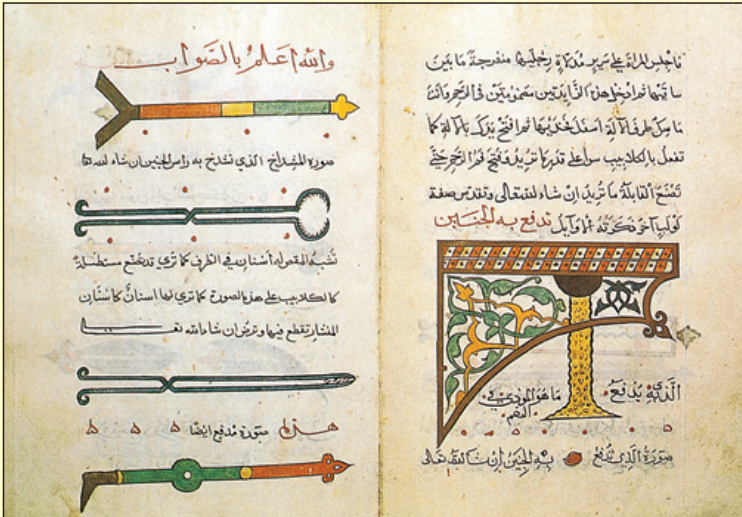 فاجلس المراة على سرير مدلاة رجليها منفرجة ما بين
ساقيها ثم ادخل هذه الزايدتين مضمومتين في الرحم وانت
ماسك طرف الالة اسفل فخذيها ثم افتح يدك بالالة كما
تفعل بالكلاليب سوا على قدر ما تريد فتح فم الرحم حتى
تصنع القابلة ما تريد ان شاء الله تعالى صفة
لولب اخر ذكرته الاوايل تدفع به الجنين
الذي يدفع ما هو المودي في
الفم
صورة الذي تدفع به الجنين ان شا الله تعالى
والله اعلم بالصواب
صورة المشداخ الذي تشدخ به راس الجنين ان شاء الله
تشبه المقص له اسنان في الطرف كما ترى قد يصنع مستطيلة
كالكلاليب على هذه الصورة كما ترى لها اسنان كاسنان
المنشار تقطع فيها وترض ان شاء الله
هذه صورة مدفع ايضا